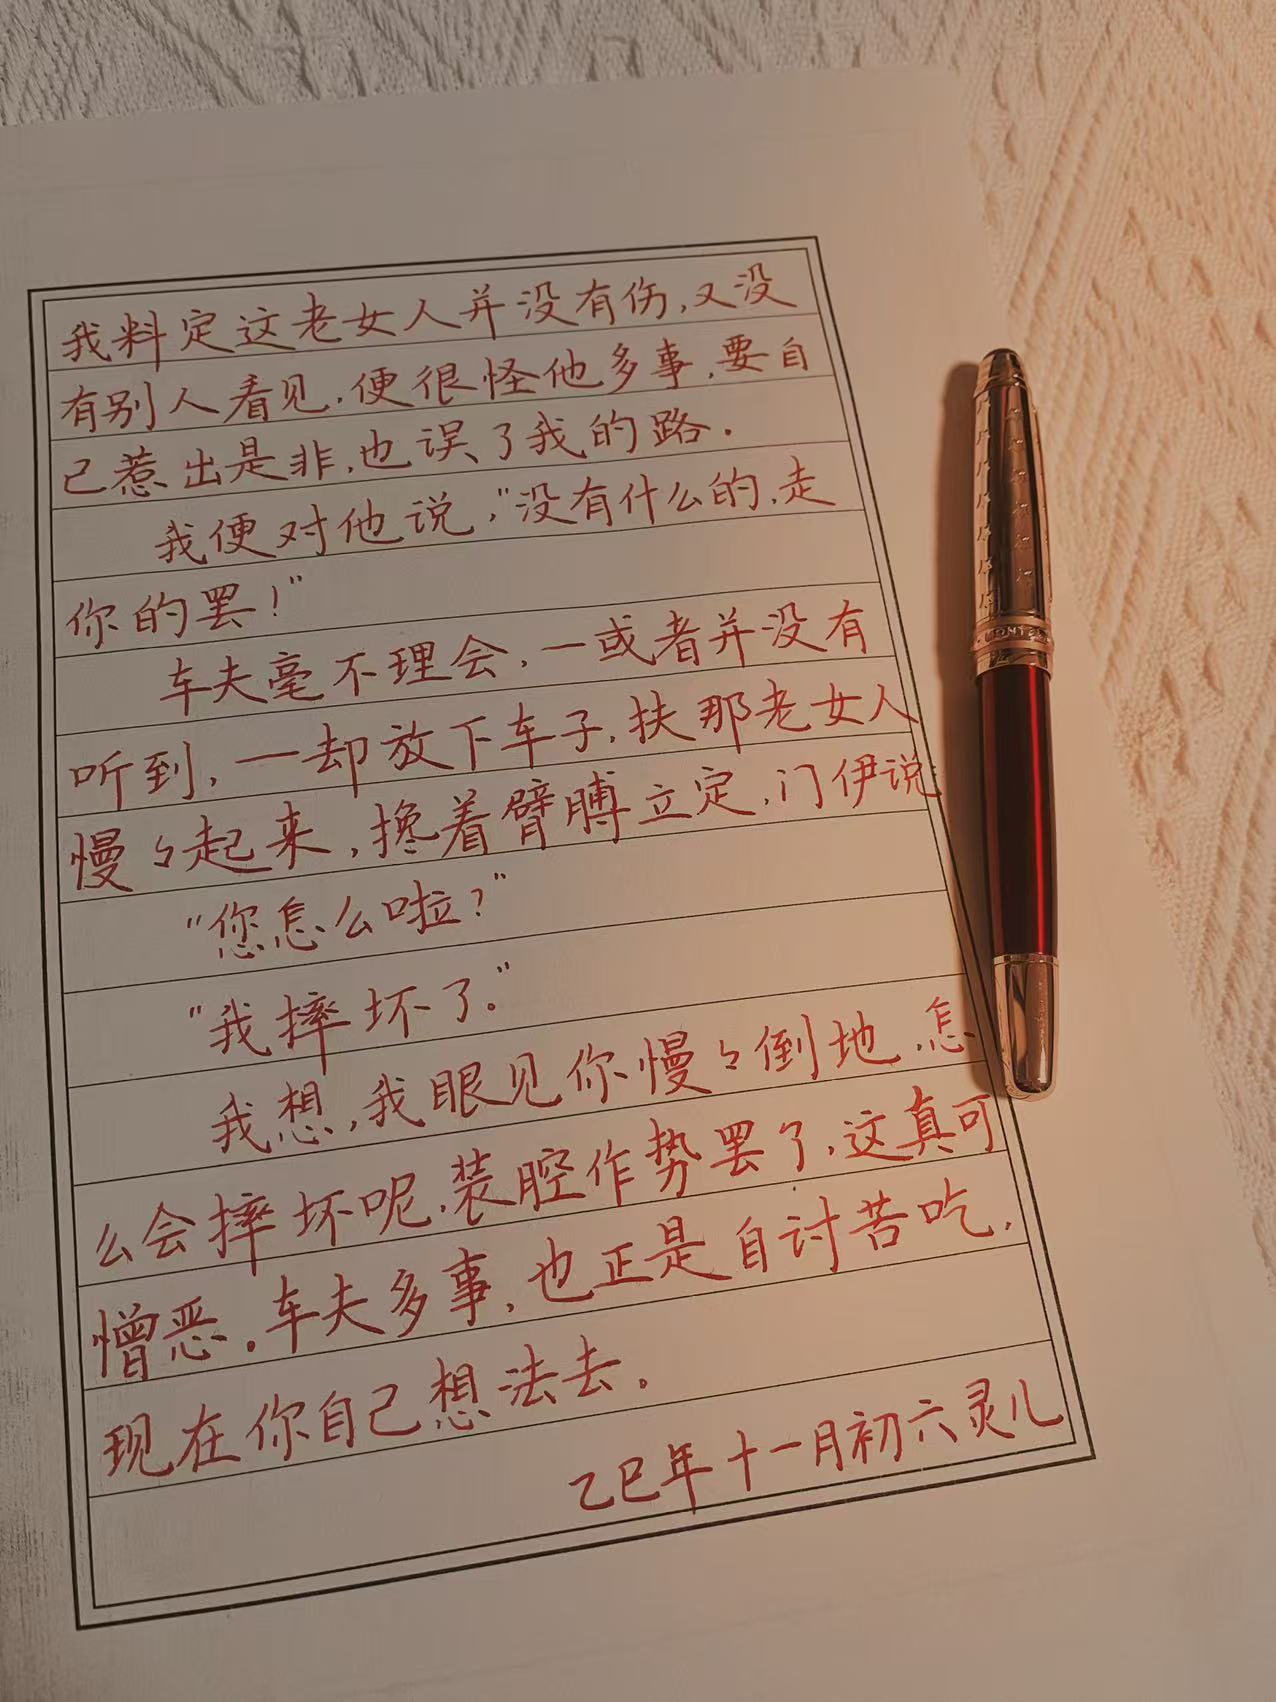 我料定这老女人并没有伤,又没
有别人看见,便很怪他多事,要自
己惹出是非,也误了我的路.
我便对他说,"没有什么的,走
你的罢!"
车夫毫不理会,一或者并没有
听到,一却放下车子,扶那老女人
慢々起来,搀着臂膊立定,门伊说
"您怎么啦?"
"我摔坏了."
我想,我眼见你慢々倒地,怎
么会摔坏呢,装腔作势罢了,这真可
憎恶。车夫多事,也正是自讨苦吃,
现在你自己想法去.
乙巳年十一月初六灵儿